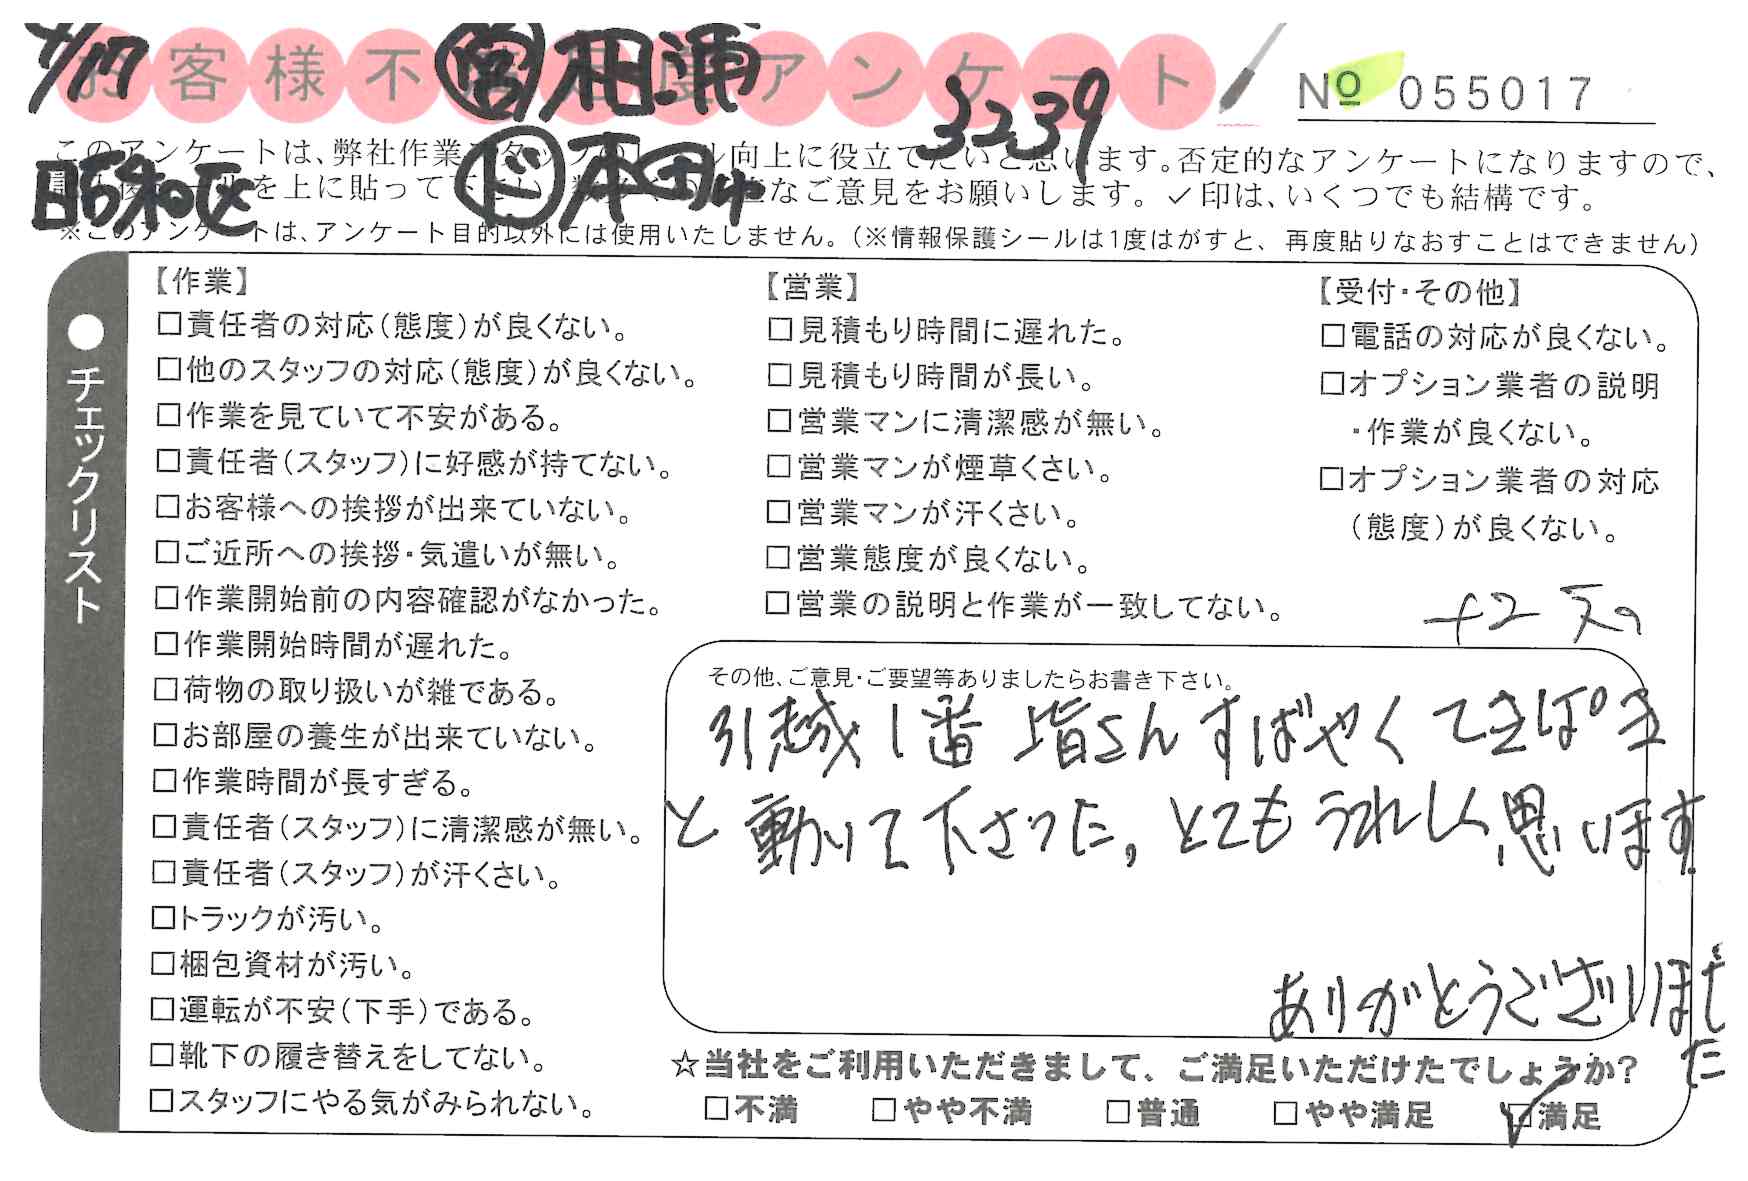 4/17 営 相浦
お客様不満足度アンケート
3239
No 055017
昭和区 ド 本田
このアンケートは、弊社作業スタッフのレベル向上に役立てたいと思います。否定的なアンケートになりますので、
を上に貼って下さい。なご意見をお願いします。✓印は、いくつでも結構です。
※このアンケートは、アンケート目的以外には使用いたしません。(※情報保護シールは1度はがすと、再度貼りなおすことはできません)
●チェックリスト
【作業】
□責任者の対応(態度)が良くない。
□他のスタッフの対応(態度)が良くない。
□作業を見ていて不安がある。
□責任者(スタッフ)に好感が持てない。
□お客様への挨拶が出来ていない。
□ご近所への挨拶・気遣いが無い。
□作業開始前の内容確認がなかった。
□作業開始時間が遅れた。
□荷物の取り扱いが雑である。
□お部屋の養生が出来ていない。
□作業時間が長すぎる。
□責任者(スタッフ)に清潔感が無い。
□責任者(スタッフ)が汗くさい。
□トラックが汚い。
□梱包資材が汚い。
□運転が不安(下手)である。
□靴下の履き替えをしてない。
□スタッフにやる気がみられない。
【営業】
□見積もり時間に遅れた。
□見積もり時間が長い。
□営業マンに清潔感が無い。
□営業マンが煙草くさい。
□営業マンが汗くさい。
□営業態度が良くない。
□営業の説明と作業が一致してない。
【受付・その他】
□電話の対応が良くない。
□オプション業者の説明
・作業が良くない。
□オプション業者の対応
(態度)が良くない。
その他、ご意見・ご要望等ありましたらお書き下さい。
引越1番 皆さん すばやく てきぱき
と 動いて 下さった, とても うれしく 思います
ありがとうございまし
た
☆当社をご利用いただきまして、ご満足いただけたでしょうか?
□不満 □やや不満 □普通 □やや満足 ☑満足